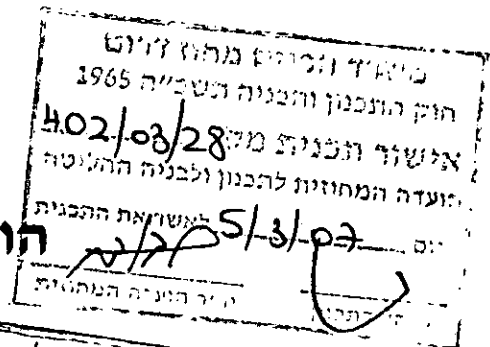 משרד הפנים מחוז דרום
חוק התכנון והבניה תשכ"ה 1965
אישור תכנית מס' 402/03/28
הועדה המחוזית לתכנון ולבניה החליטה
יום 5/3/07 לאשר את התכנית
יו"ר הועדה המחוזית